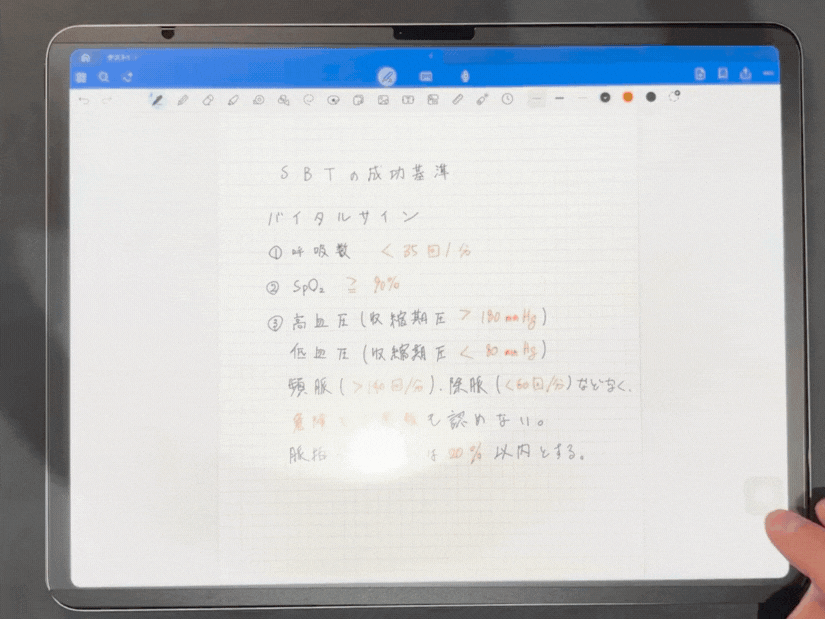 SBTの成功基準
バイタルサイン
① 呼吸数 < 35回/分
② SpO₂ ≧ 90%
③ 高血圧(収縮期圧 > 180mmHg)
低血圧(収縮期圧 < 90mmHg)
頻脈(>140回/分)、除脈(<60回/分)などなく、
も認めない。
脈拍 は 20% 以内とする。